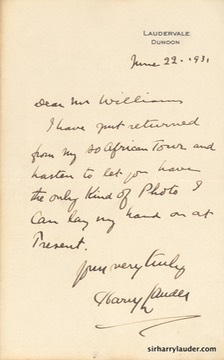 LAUDERVALE
DUNOON
June 22. 1931
Dear Mr Williams
I have just returned
from my So African Tour and
hasten to let you have
the only Kind of Photo I
Can lay my hand on at
Present.
yours very truly
Harry Lauder
sirharrylauder.com